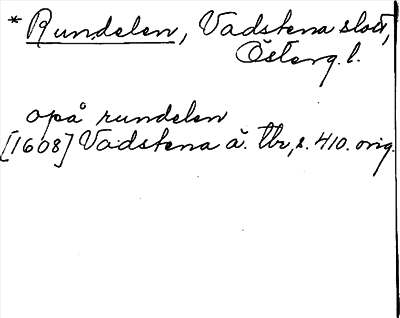 * Rundelen, Vadstena slott,
Österg. l.
opå rundelen
[1608] Vadstena ä. tbr, s. 410. orig.